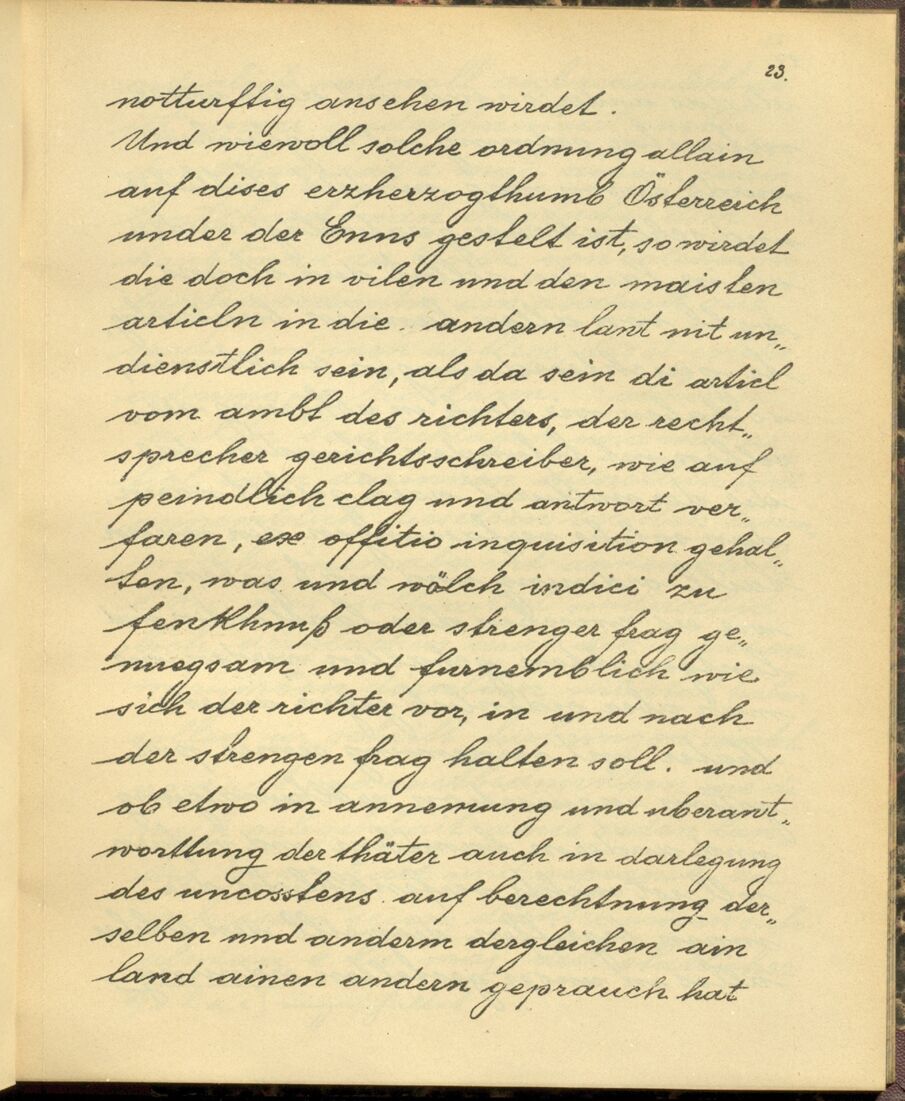 23.
notturftig ansehen wirdet.
Und wiewoll solche ordnung allain
auf dises erzherzogthumb Österreich
under der Enns gestelt ist, so wirdet
die doch in vilen und den maisten
articln in die andern lant nit un„
dienstlich sein, als da sein di articl
vom ambt des richters, der recht„
sprecher gerichtsschreiber, wie auf
peindlich clag und antwort ver„
faren, ex offitio inquisition gehal„
ten, was und wölch indici zu
fenkhnuß oder strenger frag ge„
nuegsam und furnemblich wie
sich der richter vor, in und nach
der strengen frag halten soll. und
ob etwo in annemung und uberant„
worttung der thäter auch in darlegung
des uncosstens auf berechtnung der„
selben und anderm dergleichen ain
land ainen andern geprauch hat